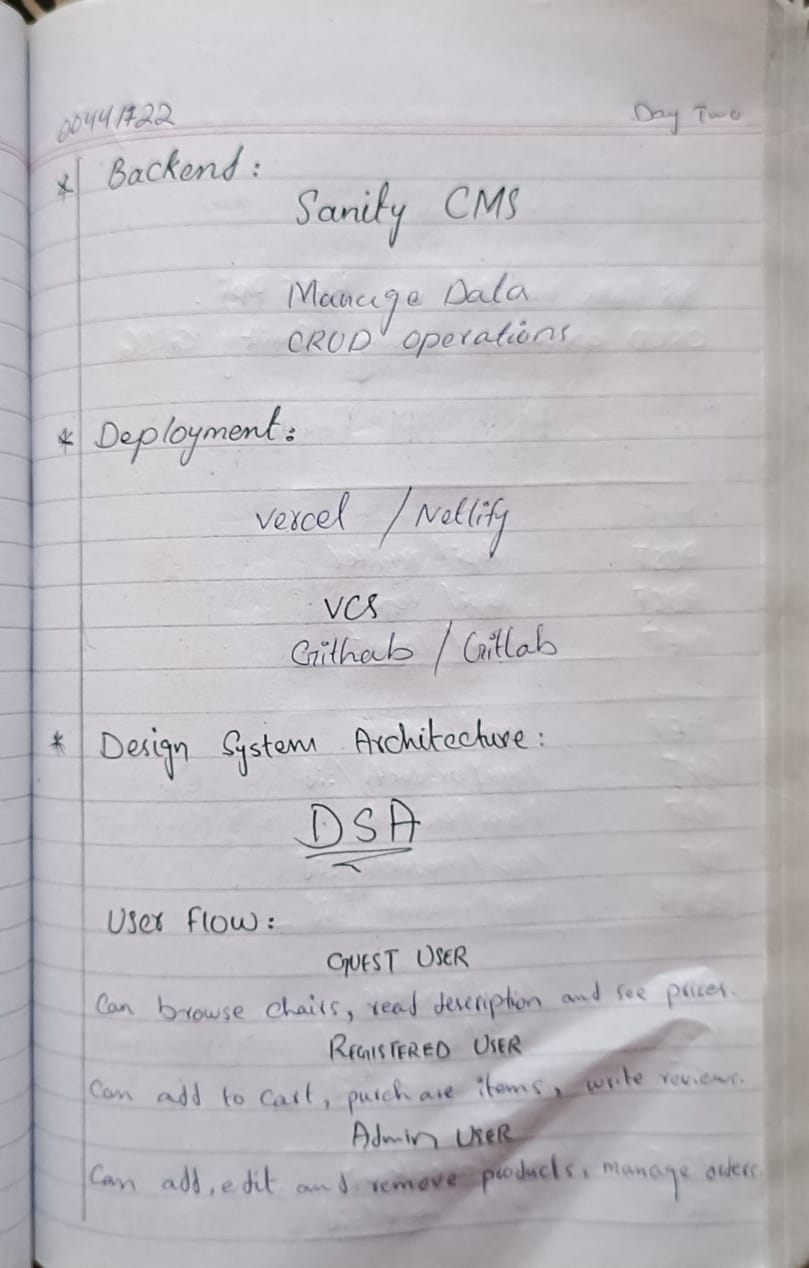 00441722
Day Two
* Backend:
Sanity CMS
Manage Data
CRUD operations
* Deployment:
Vercel / Netlify
VCS
Github / Gitlab
* Design System Architecture:
DSA
User flow:
GUEST USER
Can browse chairs, read description and see prices.
REGISTERED USER
Can add to cart, purchase items, write reviews.
Admin USER
Can add, edit and remove products, manage orders.